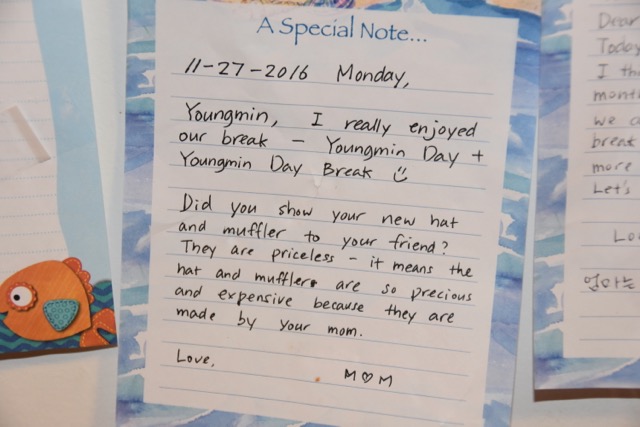 A Special Note...
11-27-2016 Monday,
Youngmin, I really enjoyed
our break - Youngmin Day +
Youngmin Day Break
Did you show your new hat
and muffler to your friend?
They are priceless - it means the
hat and muffler are so precious
and expensive because they are
made by your mom.
Love,
M♡M
Dear
Today
I
month
we
break
more
Let's
엄마는